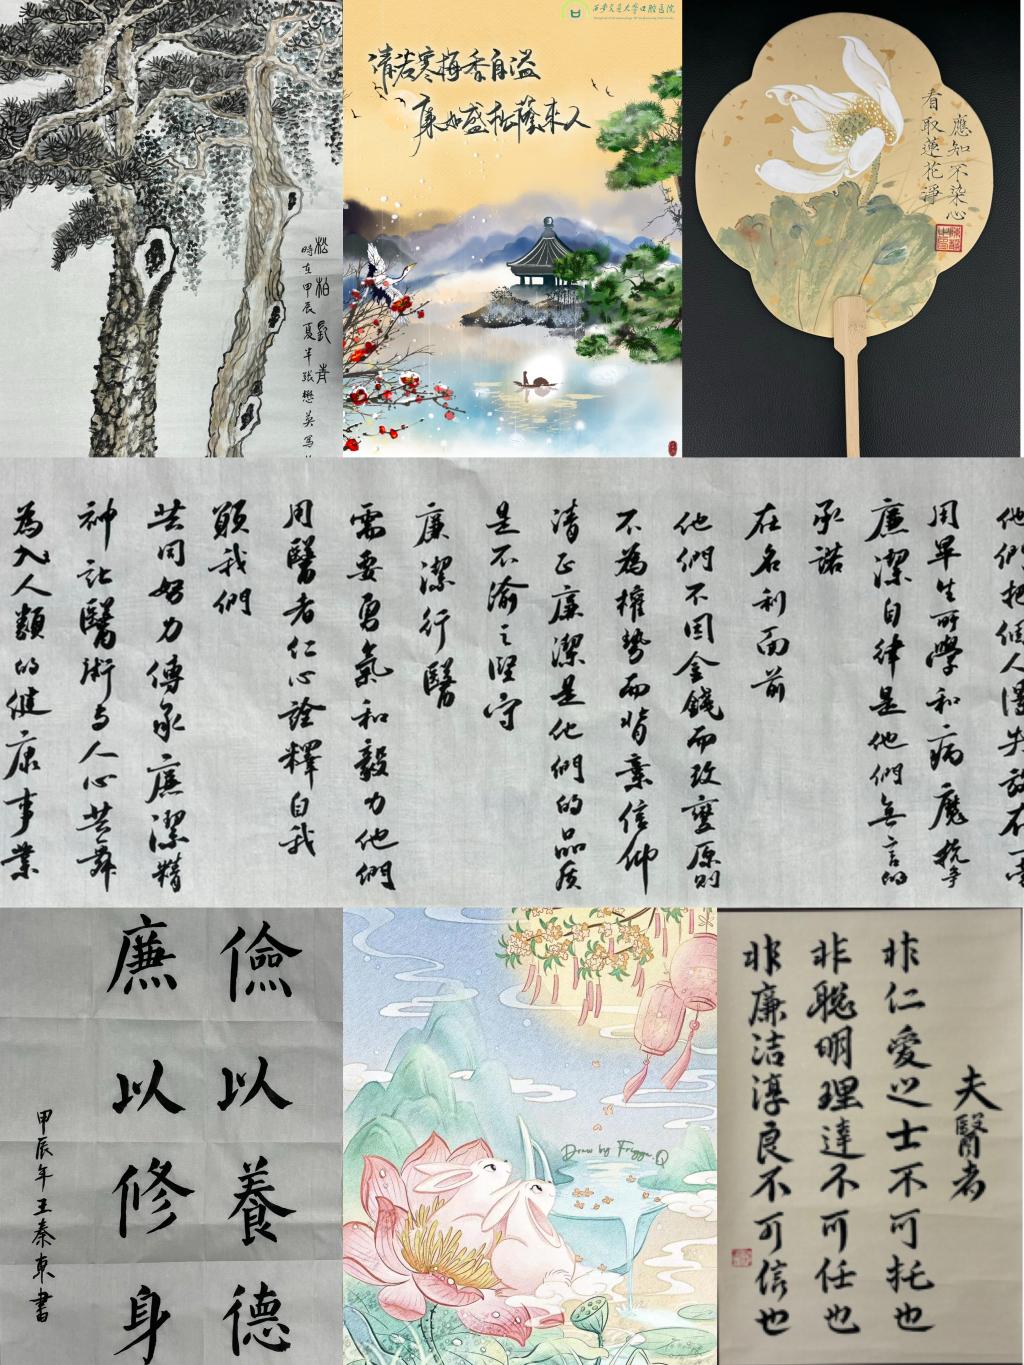 松柏長青
時在甲辰夏半張懋英寫
西安交通大学口腔医院
清若寒梅香自溢
廉如盛松蔭來人
應知不染心
看取蓮花淨
用畢生所學和病魔抗爭
廉潔自律是他們無言的
承諾
在名利面前
他們不因金錢而改變原則
不為權勢而背棄信仰
清正廉潔是他們的品质
是不渝之堅守
廉潔行醫
需要勇氣和毅力他們
用醫者仁心詮釋自我
願我們
共同努力傳承廉潔精
神讓醫術与人心共舞
為人類的健康事業
儉以養德
廉以修身
甲辰年王秦東書
Draw by Frigga.Q
夫醫者
非仁愛之士不可托也
非聪明理達不可任也
非廉洁淳良不可信也